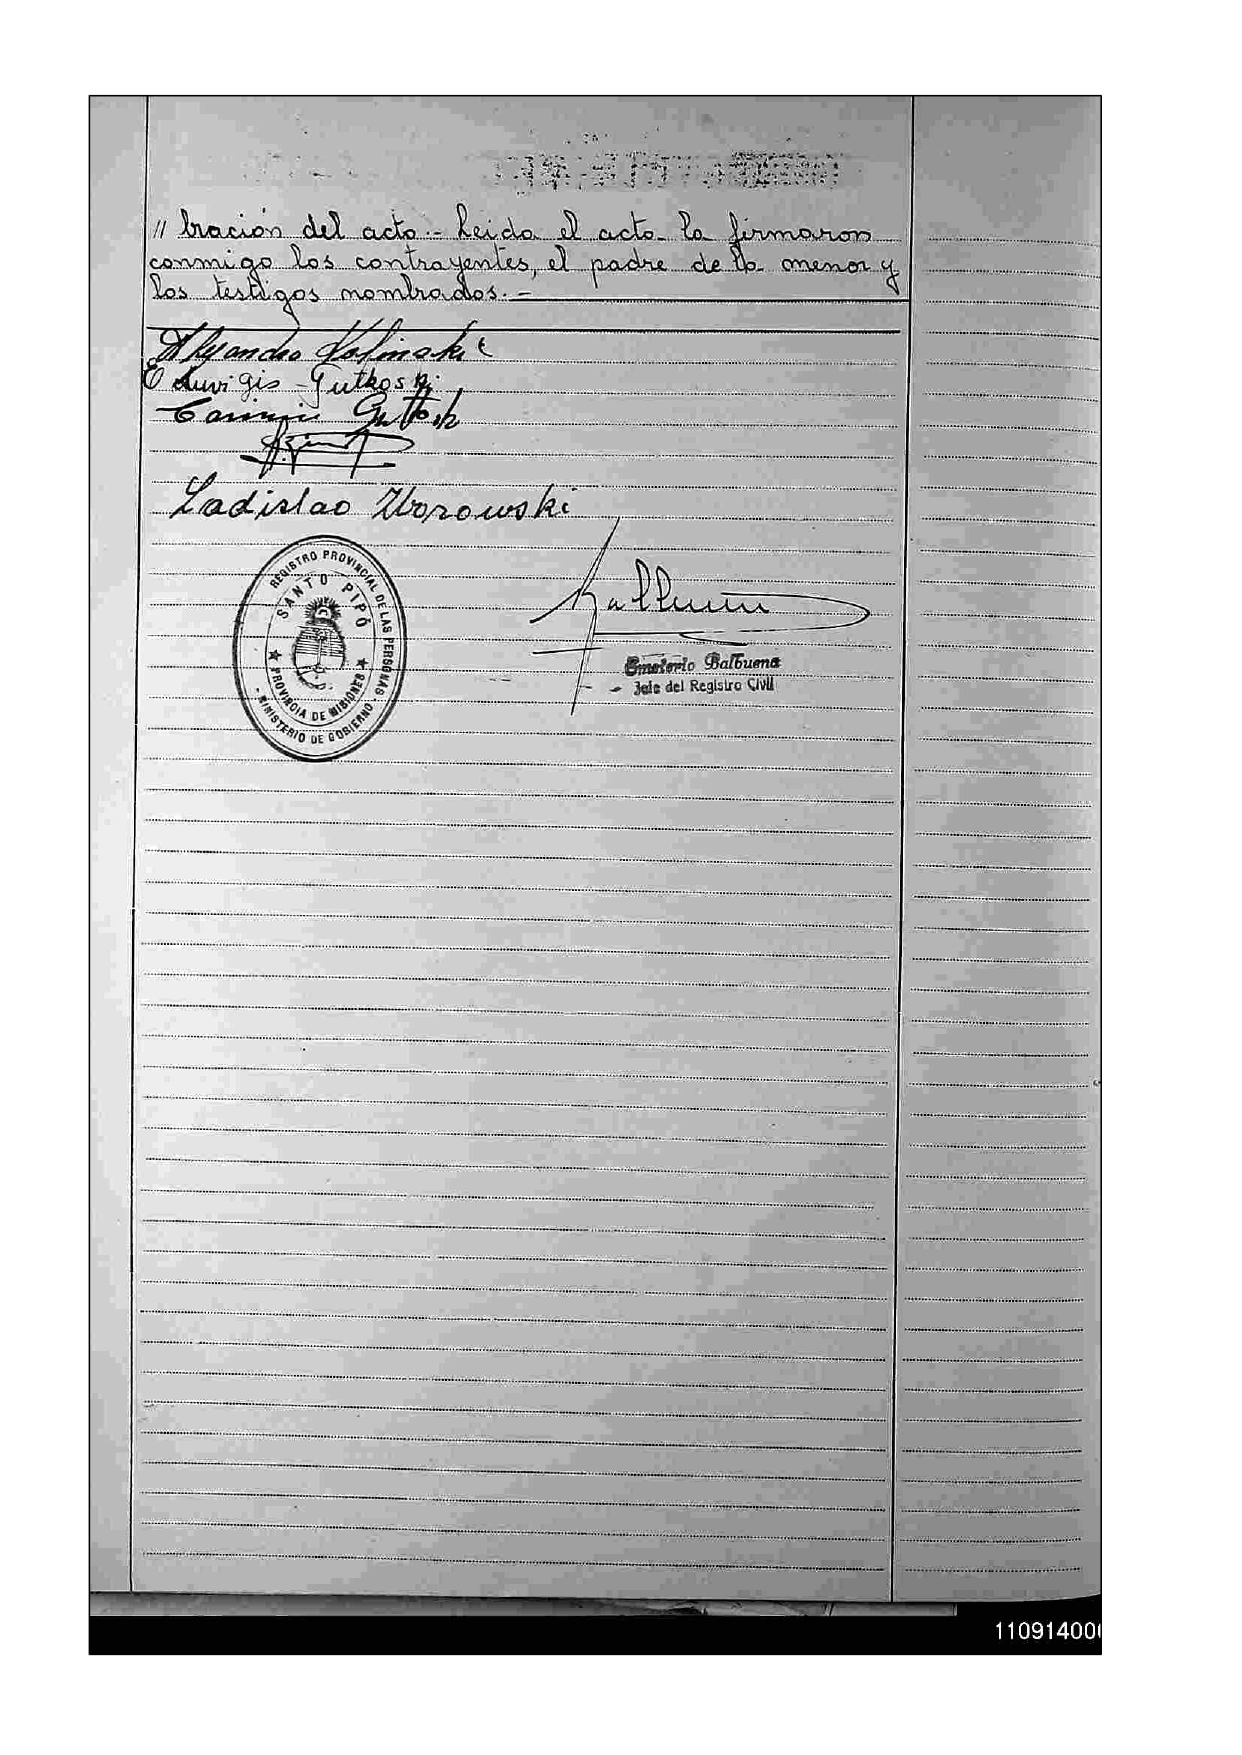 // bración del acto.- Leida el acta la firmaron
conmigo los contrayentes, el padre de la menor y
los testigos nombrados.-
Alejandro
Eduvigis Gutkoski
Ladislao Worowski
REGISTRO PROVINCIAL DE LAS PERSONAS
SANTO PIPÓ
PROVINCIA DE MISIONES
- MINISTERIO DE GOBIERNO -
Emeterio Balbuena
Jefe del Registro Civil
11091400